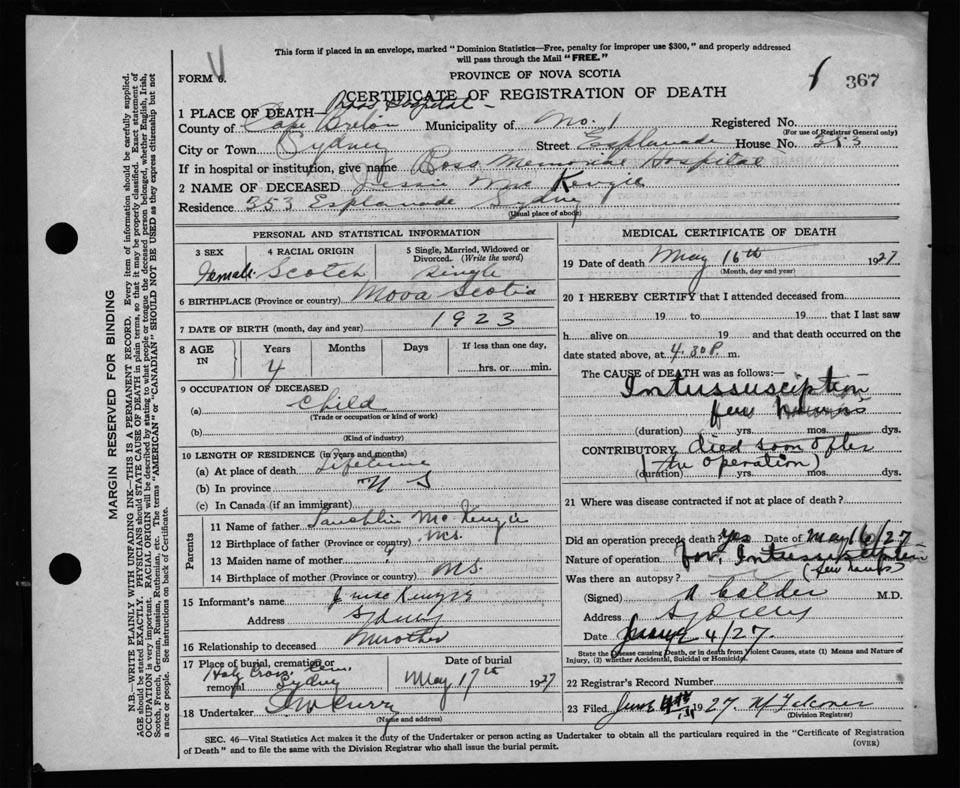 This form if placed in an envelope, marked "Dominion Statistics—Free, penalty for improper use $300," and properly addressed
will pass through the Mail "FREE."
FORM 6.
PROVINCE OF NOVA SCOTIA
367
CERTIFICATE OF REGISTRATION OF DEATH
1 PLACE OF DEATH— Hospital —
County of Cape Breton Municipality of No. 1 Registered No.
(For use of Registrar General only)
City or Town Sydney Street Esplanade House No. 353
If in hospital or institution, give name Ross Memorial Hospital
2 NAME OF DECEASED Jessie Mac Kenzie
Residence 353 Esplanade Sydney
(Usual place of abode)
PERSONAL AND STATISTICAL INFORMATION
3 SEX 4 RACIAL ORIGIN 5 Single, Married, Widowed or Divorced. (Write the word)
Female Scotch Single
6 BIRTHPLACE (Province or country) Nova Scotia
7 DATE OF BIRTH (month, day and year) 1923
8 AGE IN Years Months Days If less than one day,
4 hrs. or min.
9 OCCUPATION OF DECEASED
(a) Child
(Trade or occupation or kind of work)
(b)
(Kind of industry)
10 LENGTH OF RESIDENCE (in years and months)
(a) At place of death Lifetime
(b) In province N S
(c) In Canada (if an immigrant)
Parents
11 Name of father Lauchlin McKenzie
12 Birthplace of father (Province or country) N.S.
13 Maiden name of mother ?
14 Birthplace of mother (Province or country) N.S.
15 Informant's name
Address Sydney
16 Relationship to deceased
17 Place of burial, cremation or removal Date of burial
Holy Cross Cem. Sydney May 17th 1927
18 Undertaker Curry
(Name and address)
MEDICAL CERTIFICATE OF DEATH
19 Date of death May 16th 1927
(Month, day and year)
20 I HEREBY CERTIFY that I attended deceased from
19 to 19 that I last saw
h alive on 19 and that death occurred on the
date stated above, at 4.30 P. m.
The CAUSE OF DEATH was as follows:—
Intussusception
few hours
(duration) yrs. mos. dys.
CONTRIBUTORY died soon after
(the operation)
(duration) yrs. mos. dys.
21 Where was disease contracted if not at place of death?
Did an operation precede death? Yes Date of May 16/27
Nature of operation for Intussusception
Was there an autopsy? (few hours)
(Signed) Calder M.D.
Address Sydney
Date June 4/27.
State the Disease causing Death, or in death from Violent Causes, state (1) Means and Nature of Injury, (2) whether Accidental, Suicidal or Homicidal.
22 Registrar's Record Number
23 Filed June 4th 1927. Falconer
(Division Registrar)
SEC. 46—Vital Statistics Act makes it the duty of the Undertaker or person acting as Undertaker to obtain all the particulars required in the "Certificate of Registration
of Death" and to file the same with the Division Registrar who shall issue the burial permit.
(OVER)
MARGIN RESERVED FOR BINDING
N.B.—WRITE PLAINLY WITH UNFADING INK—THIS IS A PERMANENT RECORD. Every item of information should be carefully supplied.
AGE should be stated EXACTLY. PHYSICIANS should STATE CAUSE OF DEATH in plain terms, so that it may be properly classified. Exact statement of
OCCUPATION is very important. RACIAL ORIGIN will be described by stating to what people or tongue the deceased person belonged, whether English, Irish,
Scotch, French, German, Russian, Ruthenian, etc. The terms "AMERICAN" or "CANADIAN" SHOULD NOT BE USED as they express citizenship but not
a race or people. See instructions on back of Certificate.